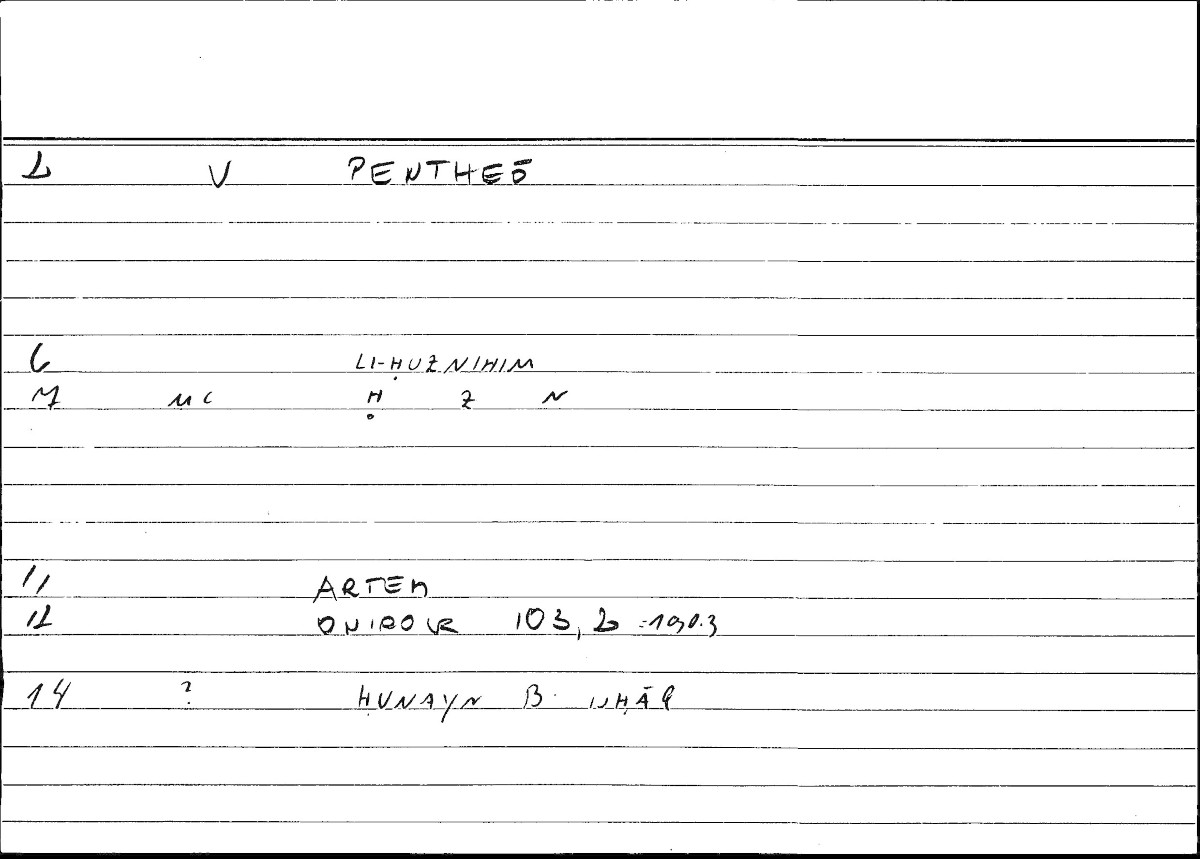 2 V PENTHEŌ
6 LI-ḤUZNIHIM
7 MC Ḥ Z N
11 ARTEM
12 ONIROCR 103, 2 = 190.3
14 ? ḤUNAYN B. ISḤĀQ